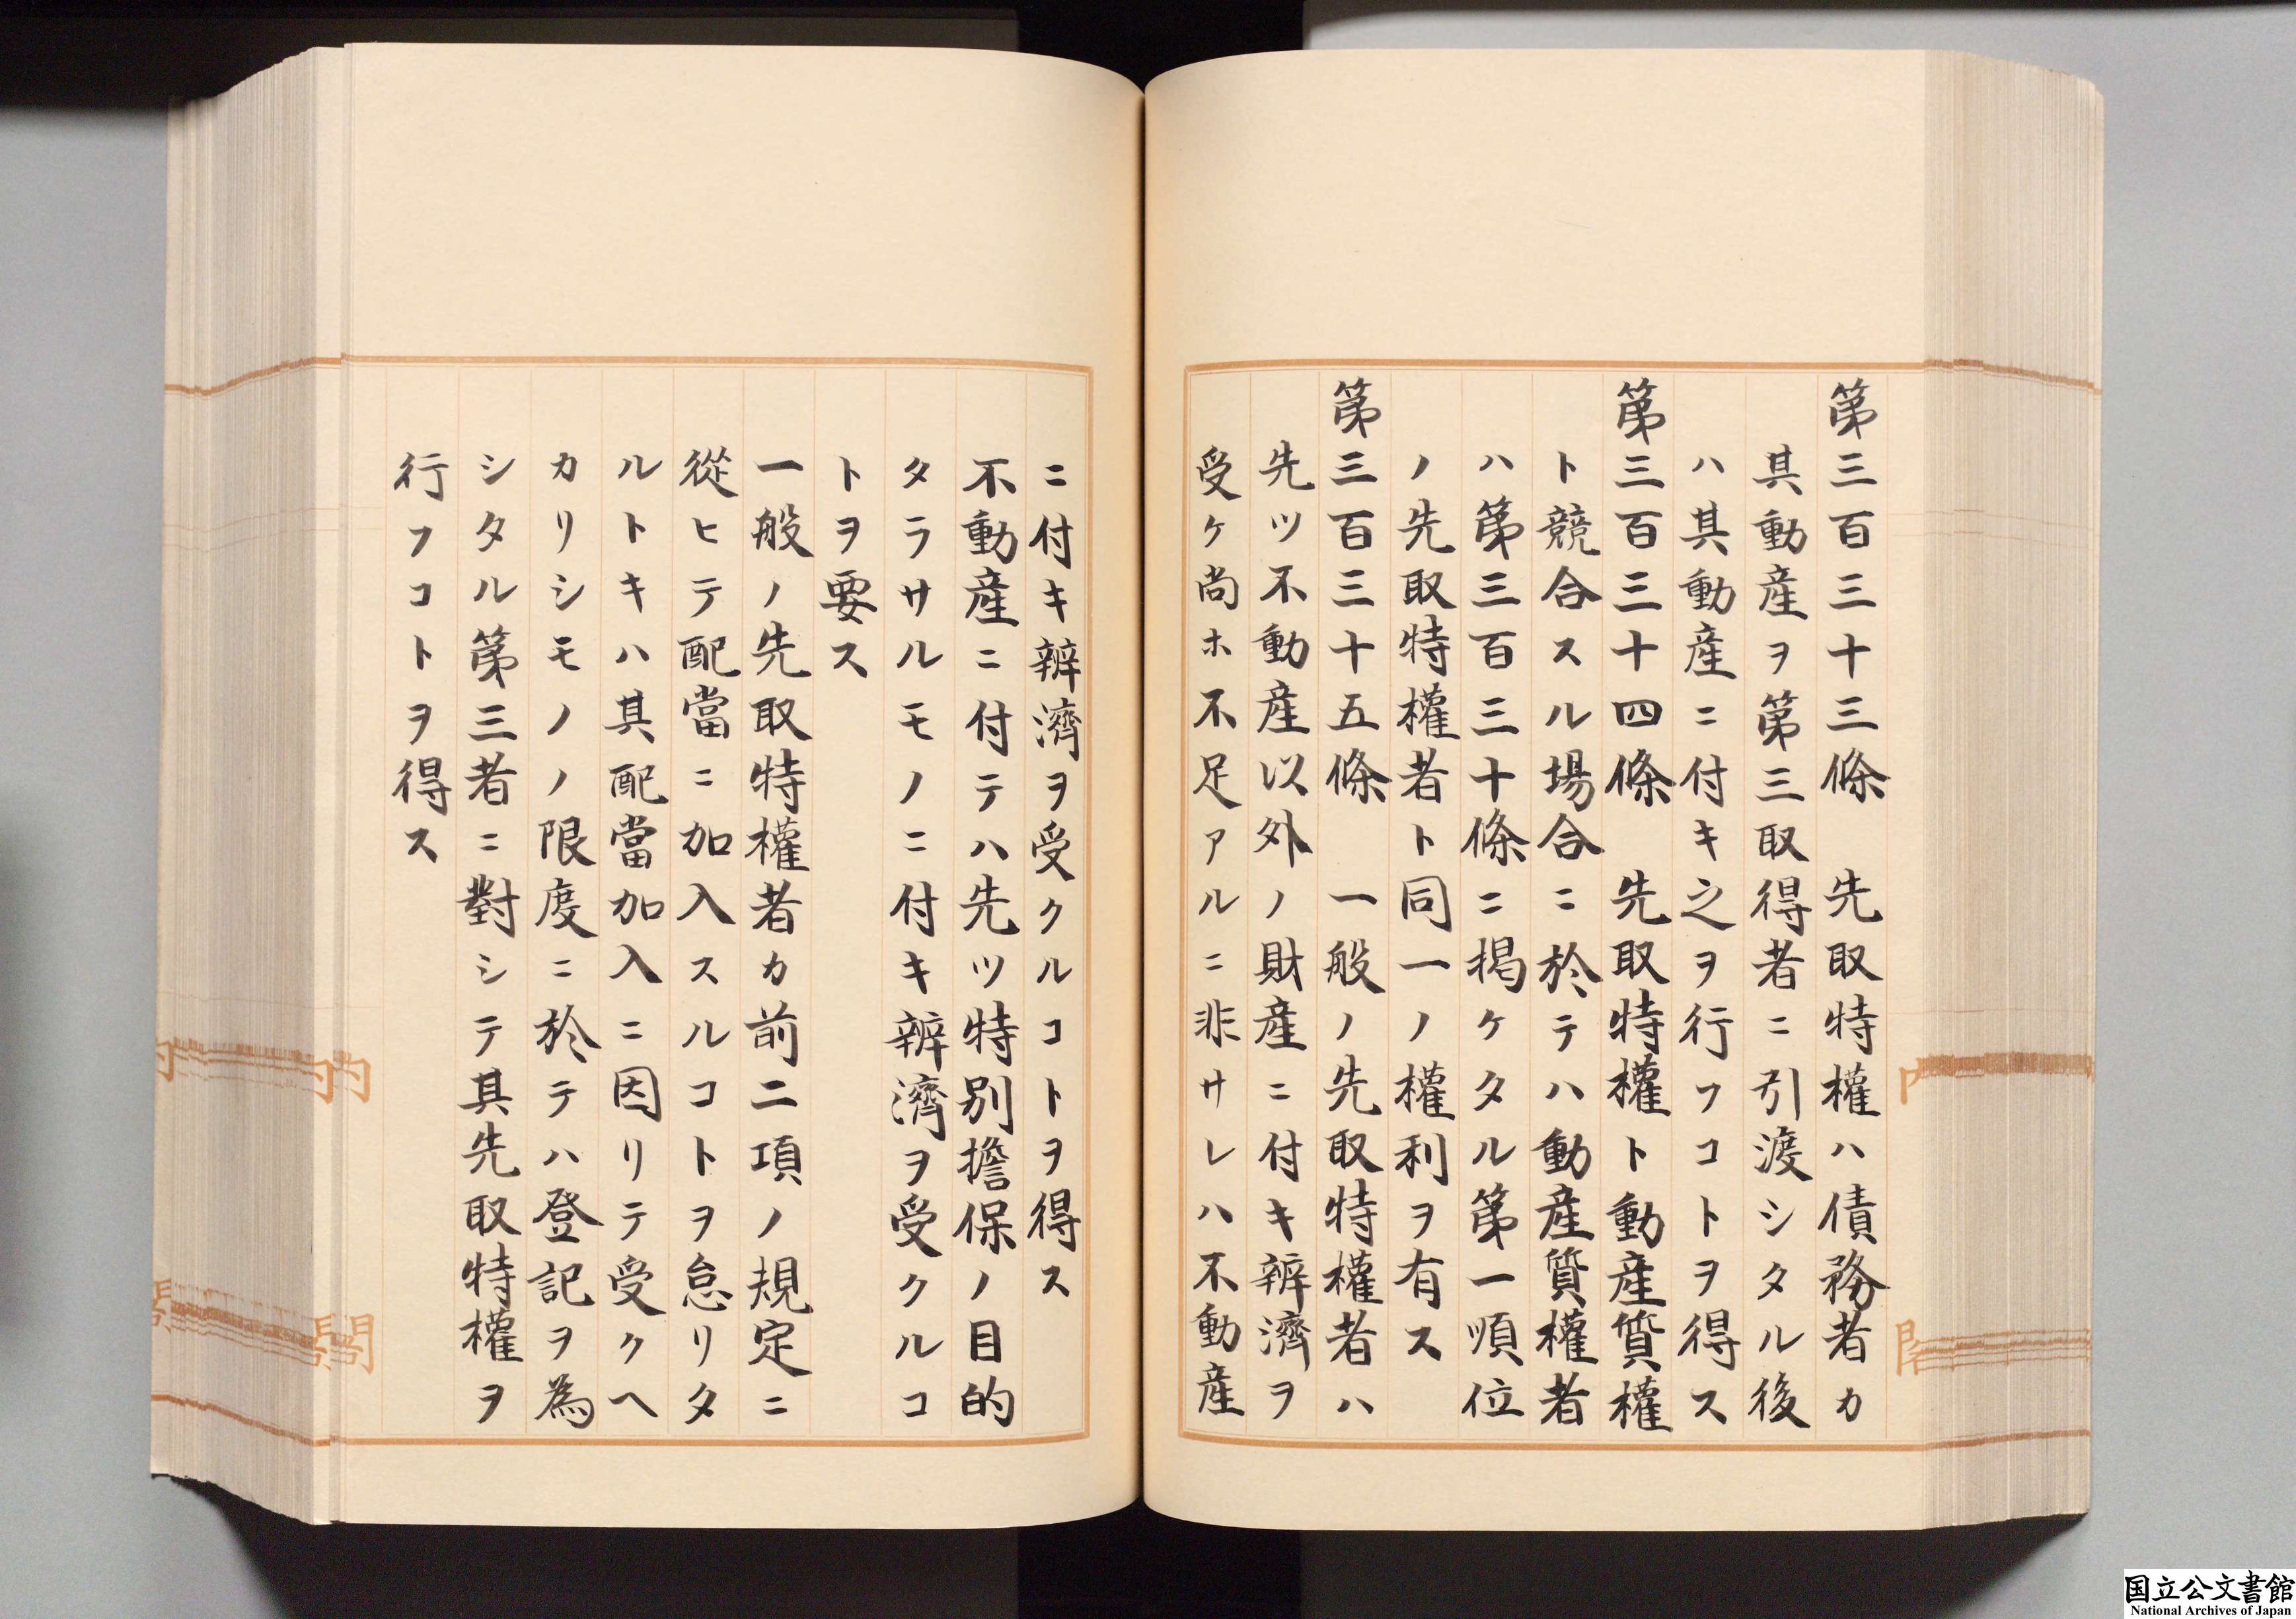 第三百三十三條　先取特權ハ債務者カ
其動產ヲ第三取得者ニ引渡シタル後
ハ其動產ニ付キ之ヲ行フコトヲ得ス
第三百三十四條　先取特權ト動產質權
ト競合スル場合ニ於テハ動產質權者
ハ第三百三十條ニ掲ケタル第一順位
ノ先取特權者ト同一ノ權利ヲ有ス
第三百三十五條　一般ノ先取特權者ハ
先ツ不動產以外ノ財產ニ付キ辨濟ヲ
受ケ尚ホ不足アルニ非サレハ不動產
ニ付キ辨濟ヲ受クルコトヲ得ス
不動產ニ付テハ先ツ特別擔保ノ目的
タラサルモノニ付キ辨濟ヲ受クルコ
トヲ要ス
一般ノ先取特權者カ前二項ノ規定ニ
從ヒテ配當ニ加入スルコトヲ怠リタ
ルトキハ其配當加入ニ因リテ受クヘ
カリシモノノ限度ニ於テハ登記ヲ為
シタル第三者ニ對シテ其先取特權ヲ
行フコトヲ得ス
国立公文書館
National Archives of Japan